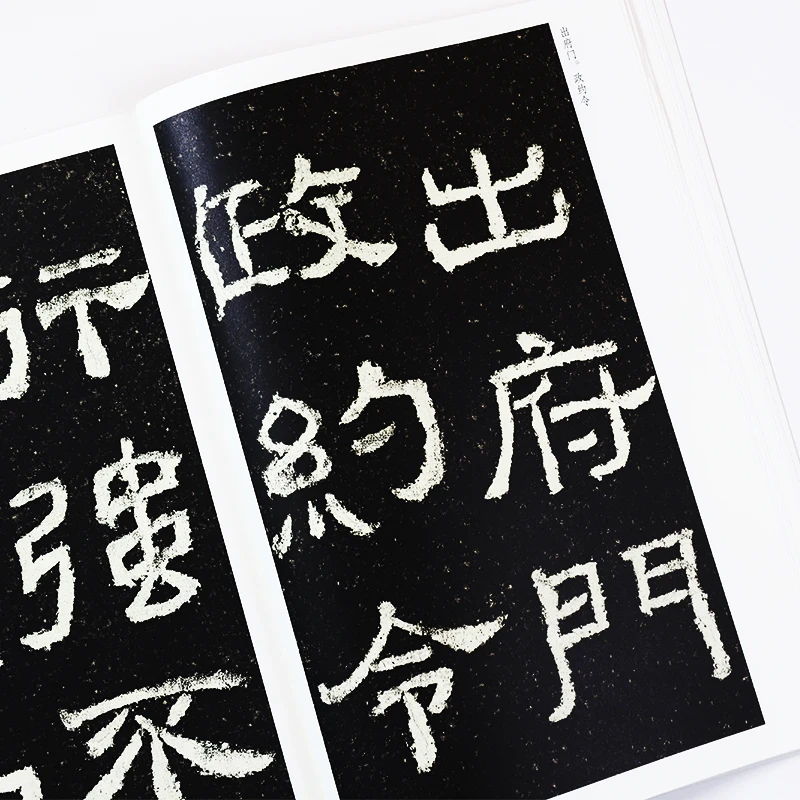 出府门。政约令
出府門
政約令
行強不